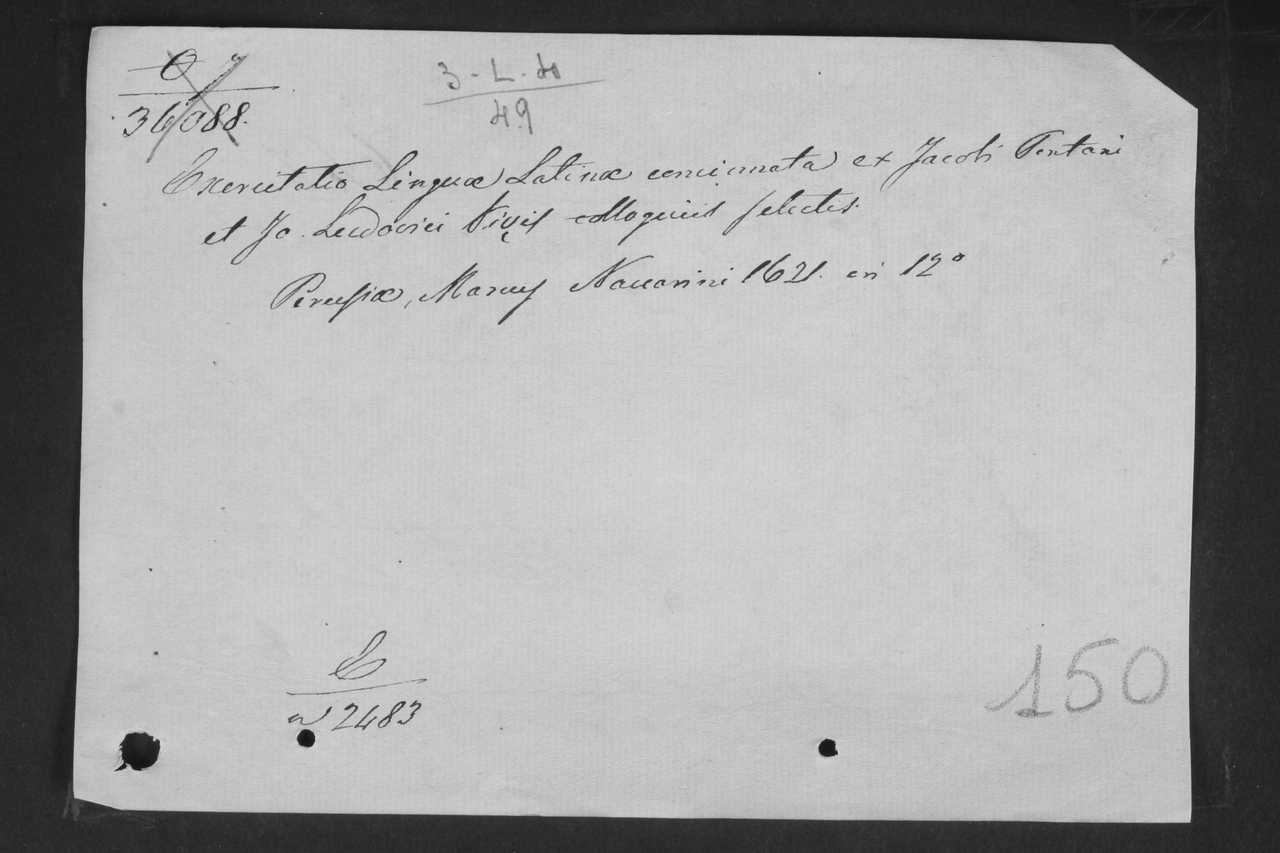 O 7
36088.
3-L-40
49
Exercitatio Linguæ Latinæ concinnata ex Jacobi Pontani
et Jo. Ludovici Vivis colloquiis selectis.
Perusiæ, Marcus Naccarini 1621. in 12°
E
n 2483
150